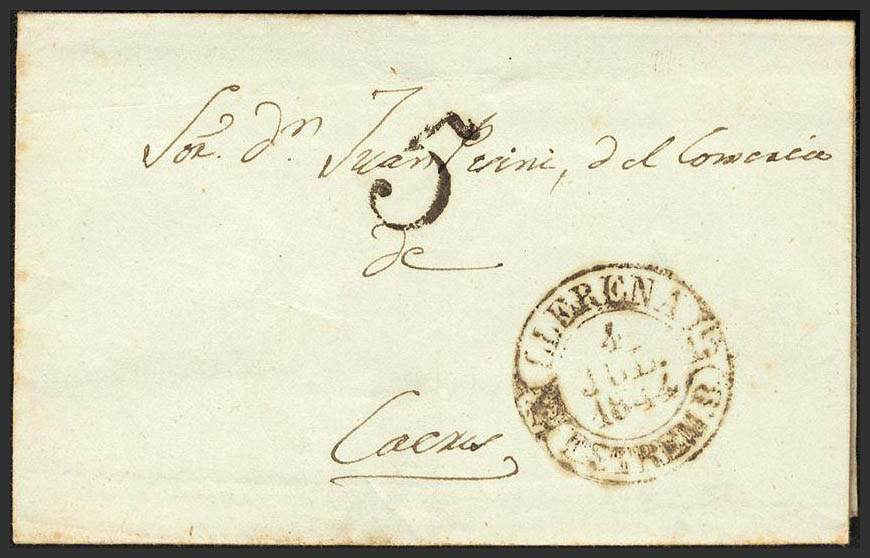 Sor. Dn. Juan Pisini, del Comercio
5
de
Caceres
LLERENA
4
JUL.
1844
ESTREM.